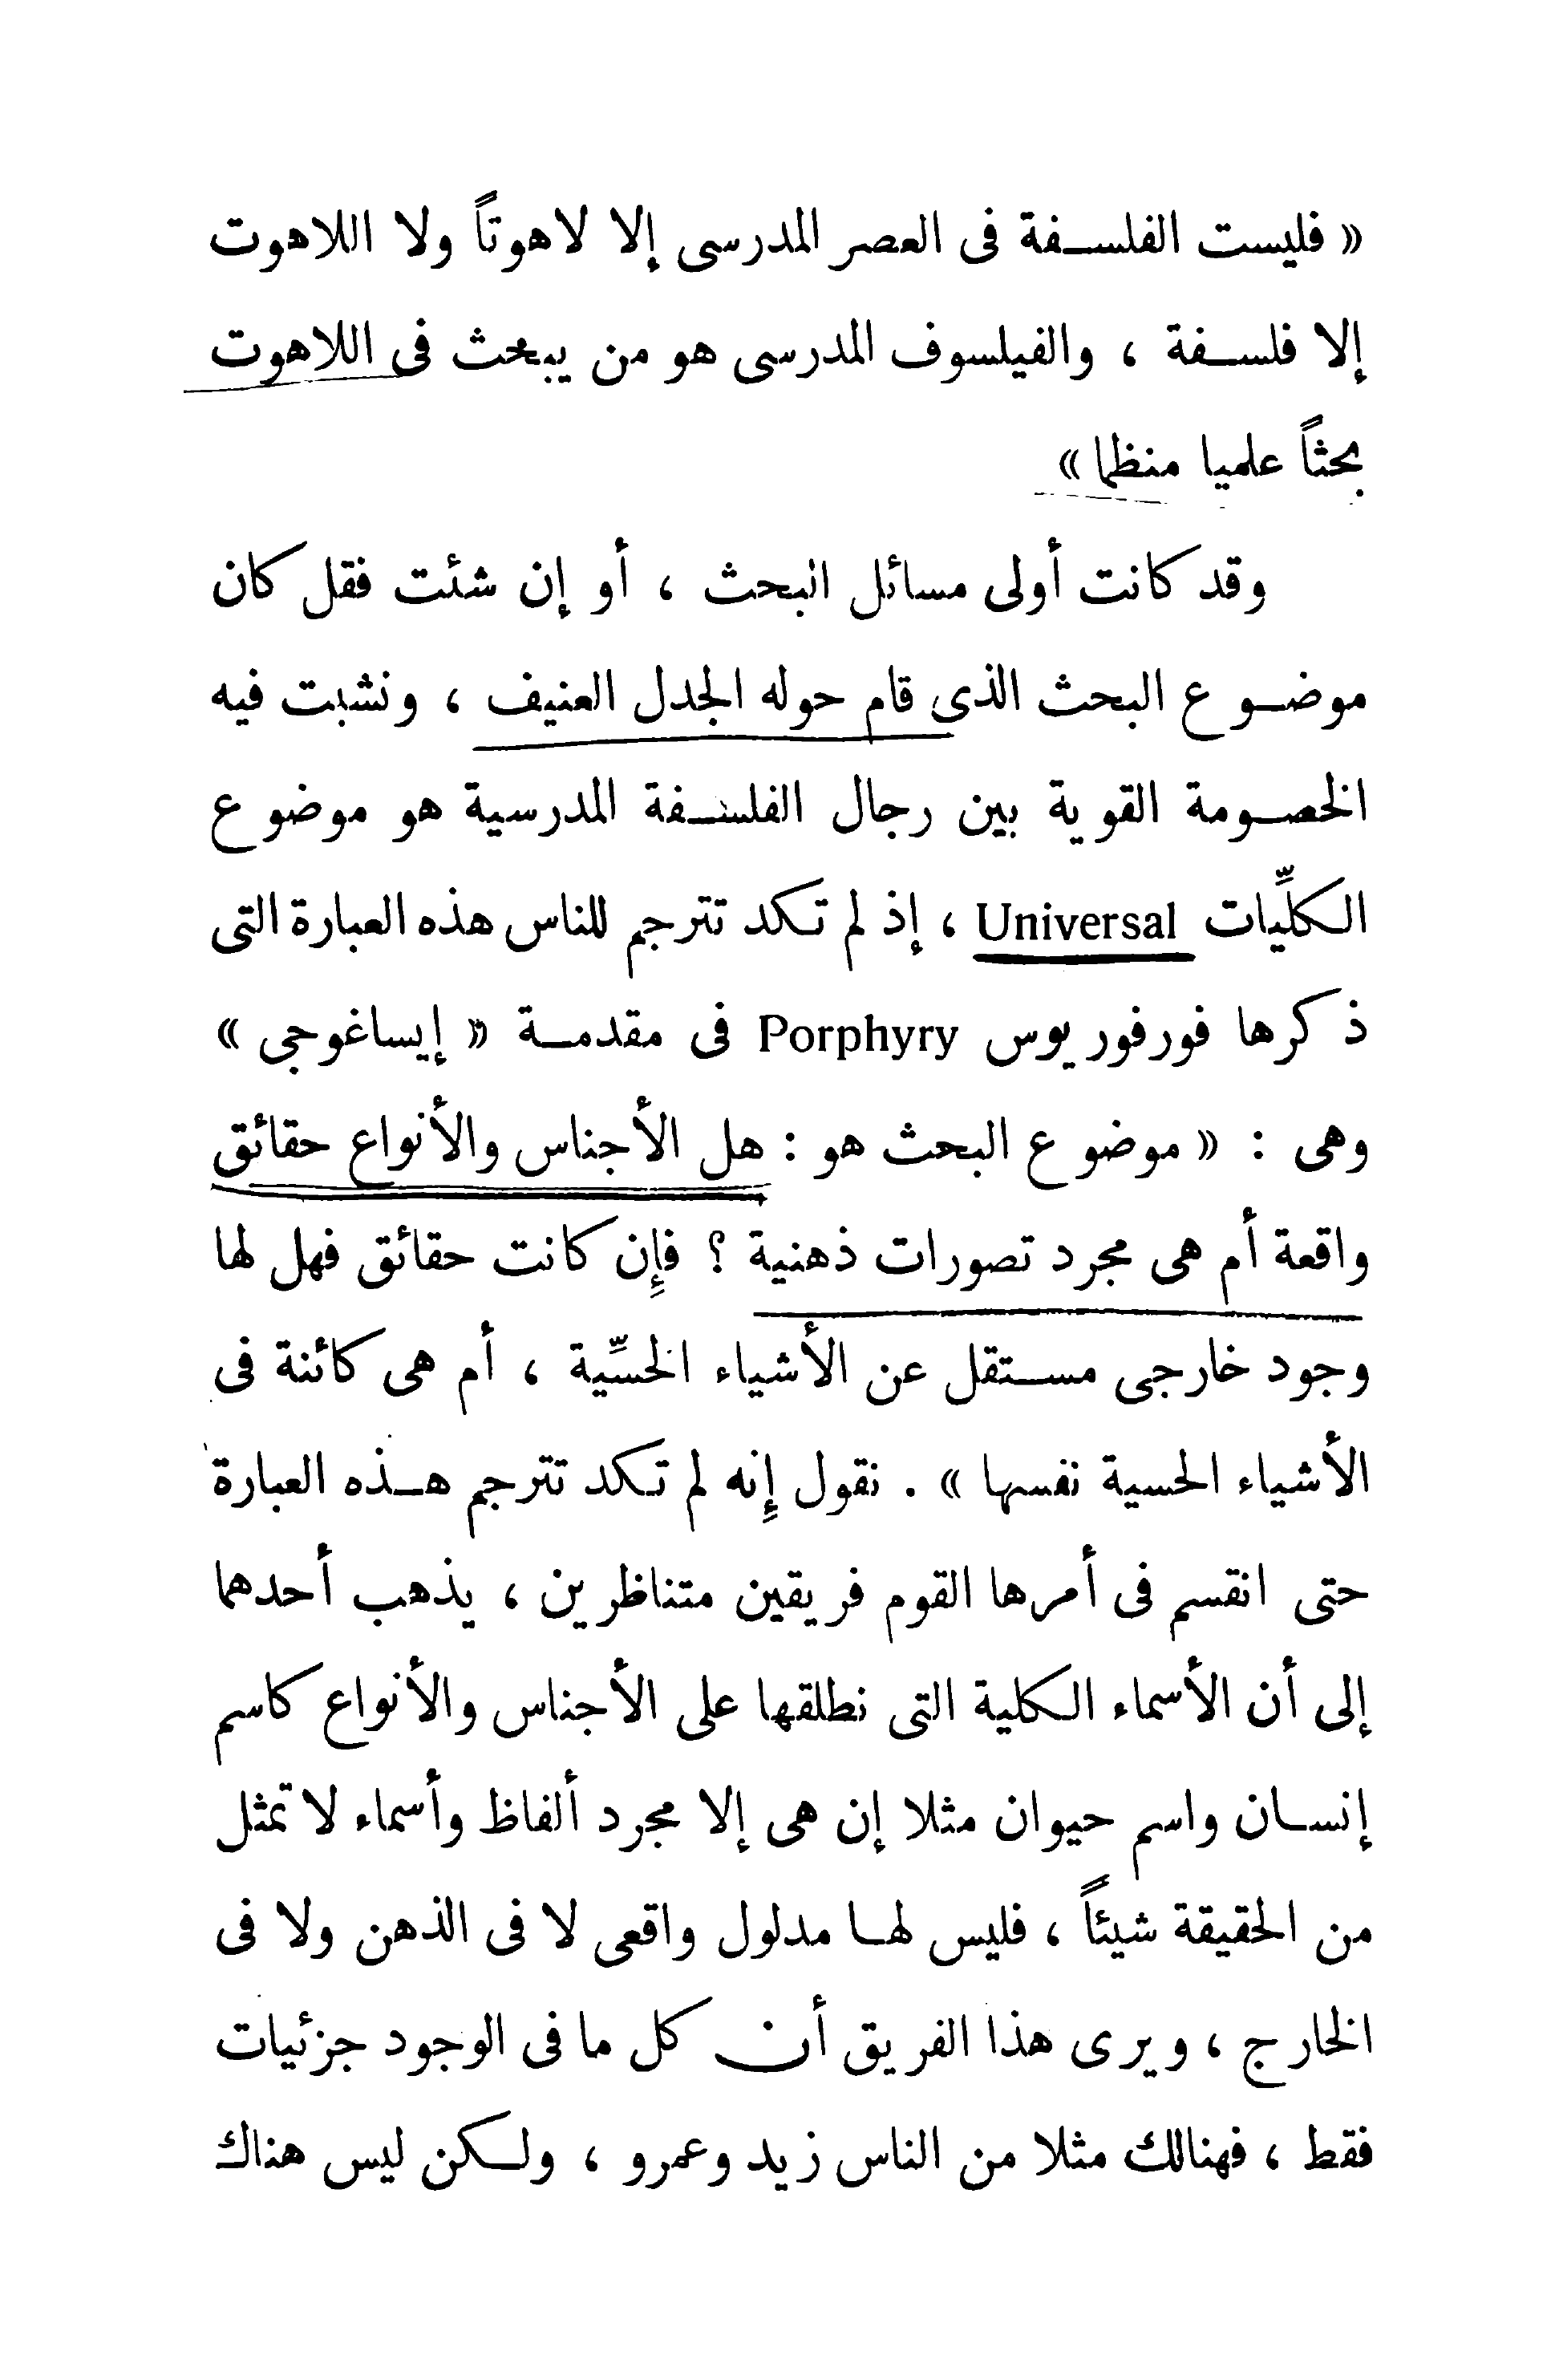 « فليست الفلسفة فى العصر المدرسى إلا لاهوتاً ولا اللاهوت
إلا فلسفة ، والفيلسوف المدرسى هو من يبحث فى اللاهوت
بحثاً علميا منظما »
وقد كانت أولى مسائل البحث ، أو إن شئت فقل كان
موضوع البحث الذى قام حوله الجدل العنيف ، ونشبت فيه
الخصومة القوية بين رجال الفلسفة المدرسية هو موضوع
الكلِّيات Universal ، إذ لم تكد تترجم للناس هذه العبارة التى
ذكرها فورفوريوس Porphyry فى مقدمة « إيساغوجى »
وهى : « موضوع البحث هو : هل الأجناس والأنواع حقائق
واقعة أم هى مجرد تصورات ذهنية ؟ فإن كانت حقائق فهل لها
وجود خارجى مستقل عن الأشياء الحسِّية ، أم هى كائنة فى
الأشياء الحسية نفسها » . نقول إنه لم تكد تترجم هذه العبارة
حتى انقسم فى أمرها القوم فريقين متناظرين ، يذهب أحدهما
إلى أن الأسماء الكلية التى نطلقها على الأجناس والأنواع كاسم
إنسان واسم حيوان مثلا إن هى إلا مجرد ألفاظ وأسماء لا تمثل
من الحقيقة شيئاً ، فليس لها مدلول واقعى لا فى الذهن ولا فى
الخارج ، ويرى هذا الفريق أن كل ما فى الوجود جزئيات
فقط ، فهنالك مثلا من الناس زيد وعمرو ، ولكن ليس هناك